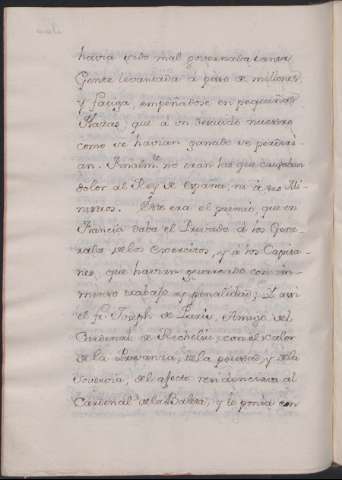 havia sido mal governada tanta
Gente levantada à peso de millones
y fatiga, empeñandose en pequeñas
Plazas; que à un descuido nuestro
como se havian ganado se perderi-
an. Finalm.te no eran las que causaban
dolor al Rey de España, ni à sus Mi-
nistros. Este era el premio, que en
Francia daba el Privado à los Gene-
rales de los Exercitos, y à los Capita-
nes, que havian guerreado con in-
menso trabajo y penalidad; Y assi
el fr. Joseph de Paris, Amigo del
Cardenal de Rechelieu; con el calor
de la Privanza, de la potestad y de la
, del afecto al
Cardenal de la Baleta, y le ponia con